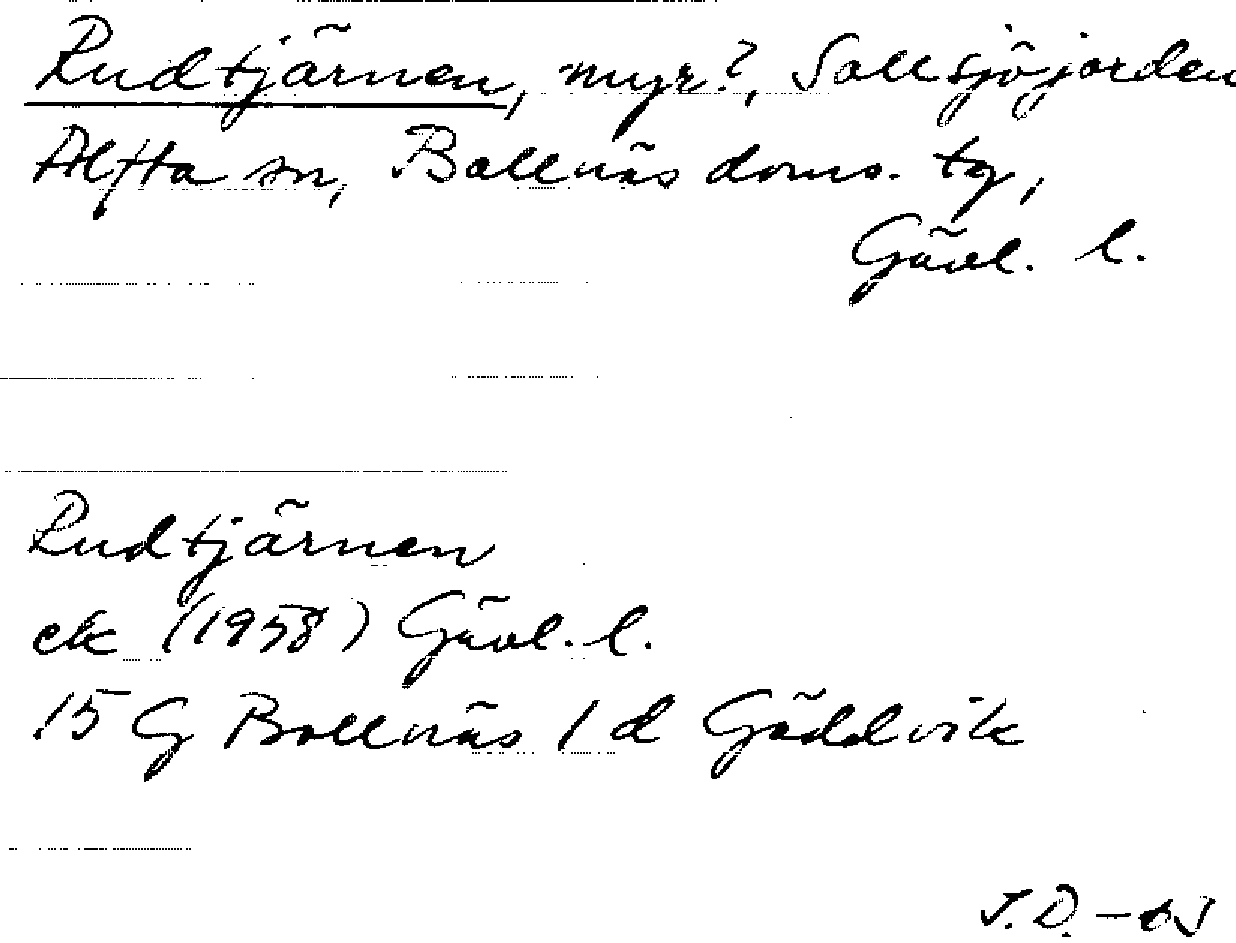 Rudtjärnen, myr?, Sallsjöjorden
Alfta sn, Bollnäs doms. tg,
Gävl. l.
Rudtjärnen
ek (1958) Gävl. l.
15 G Bollnäs 1 d Gäddvik
J.D.